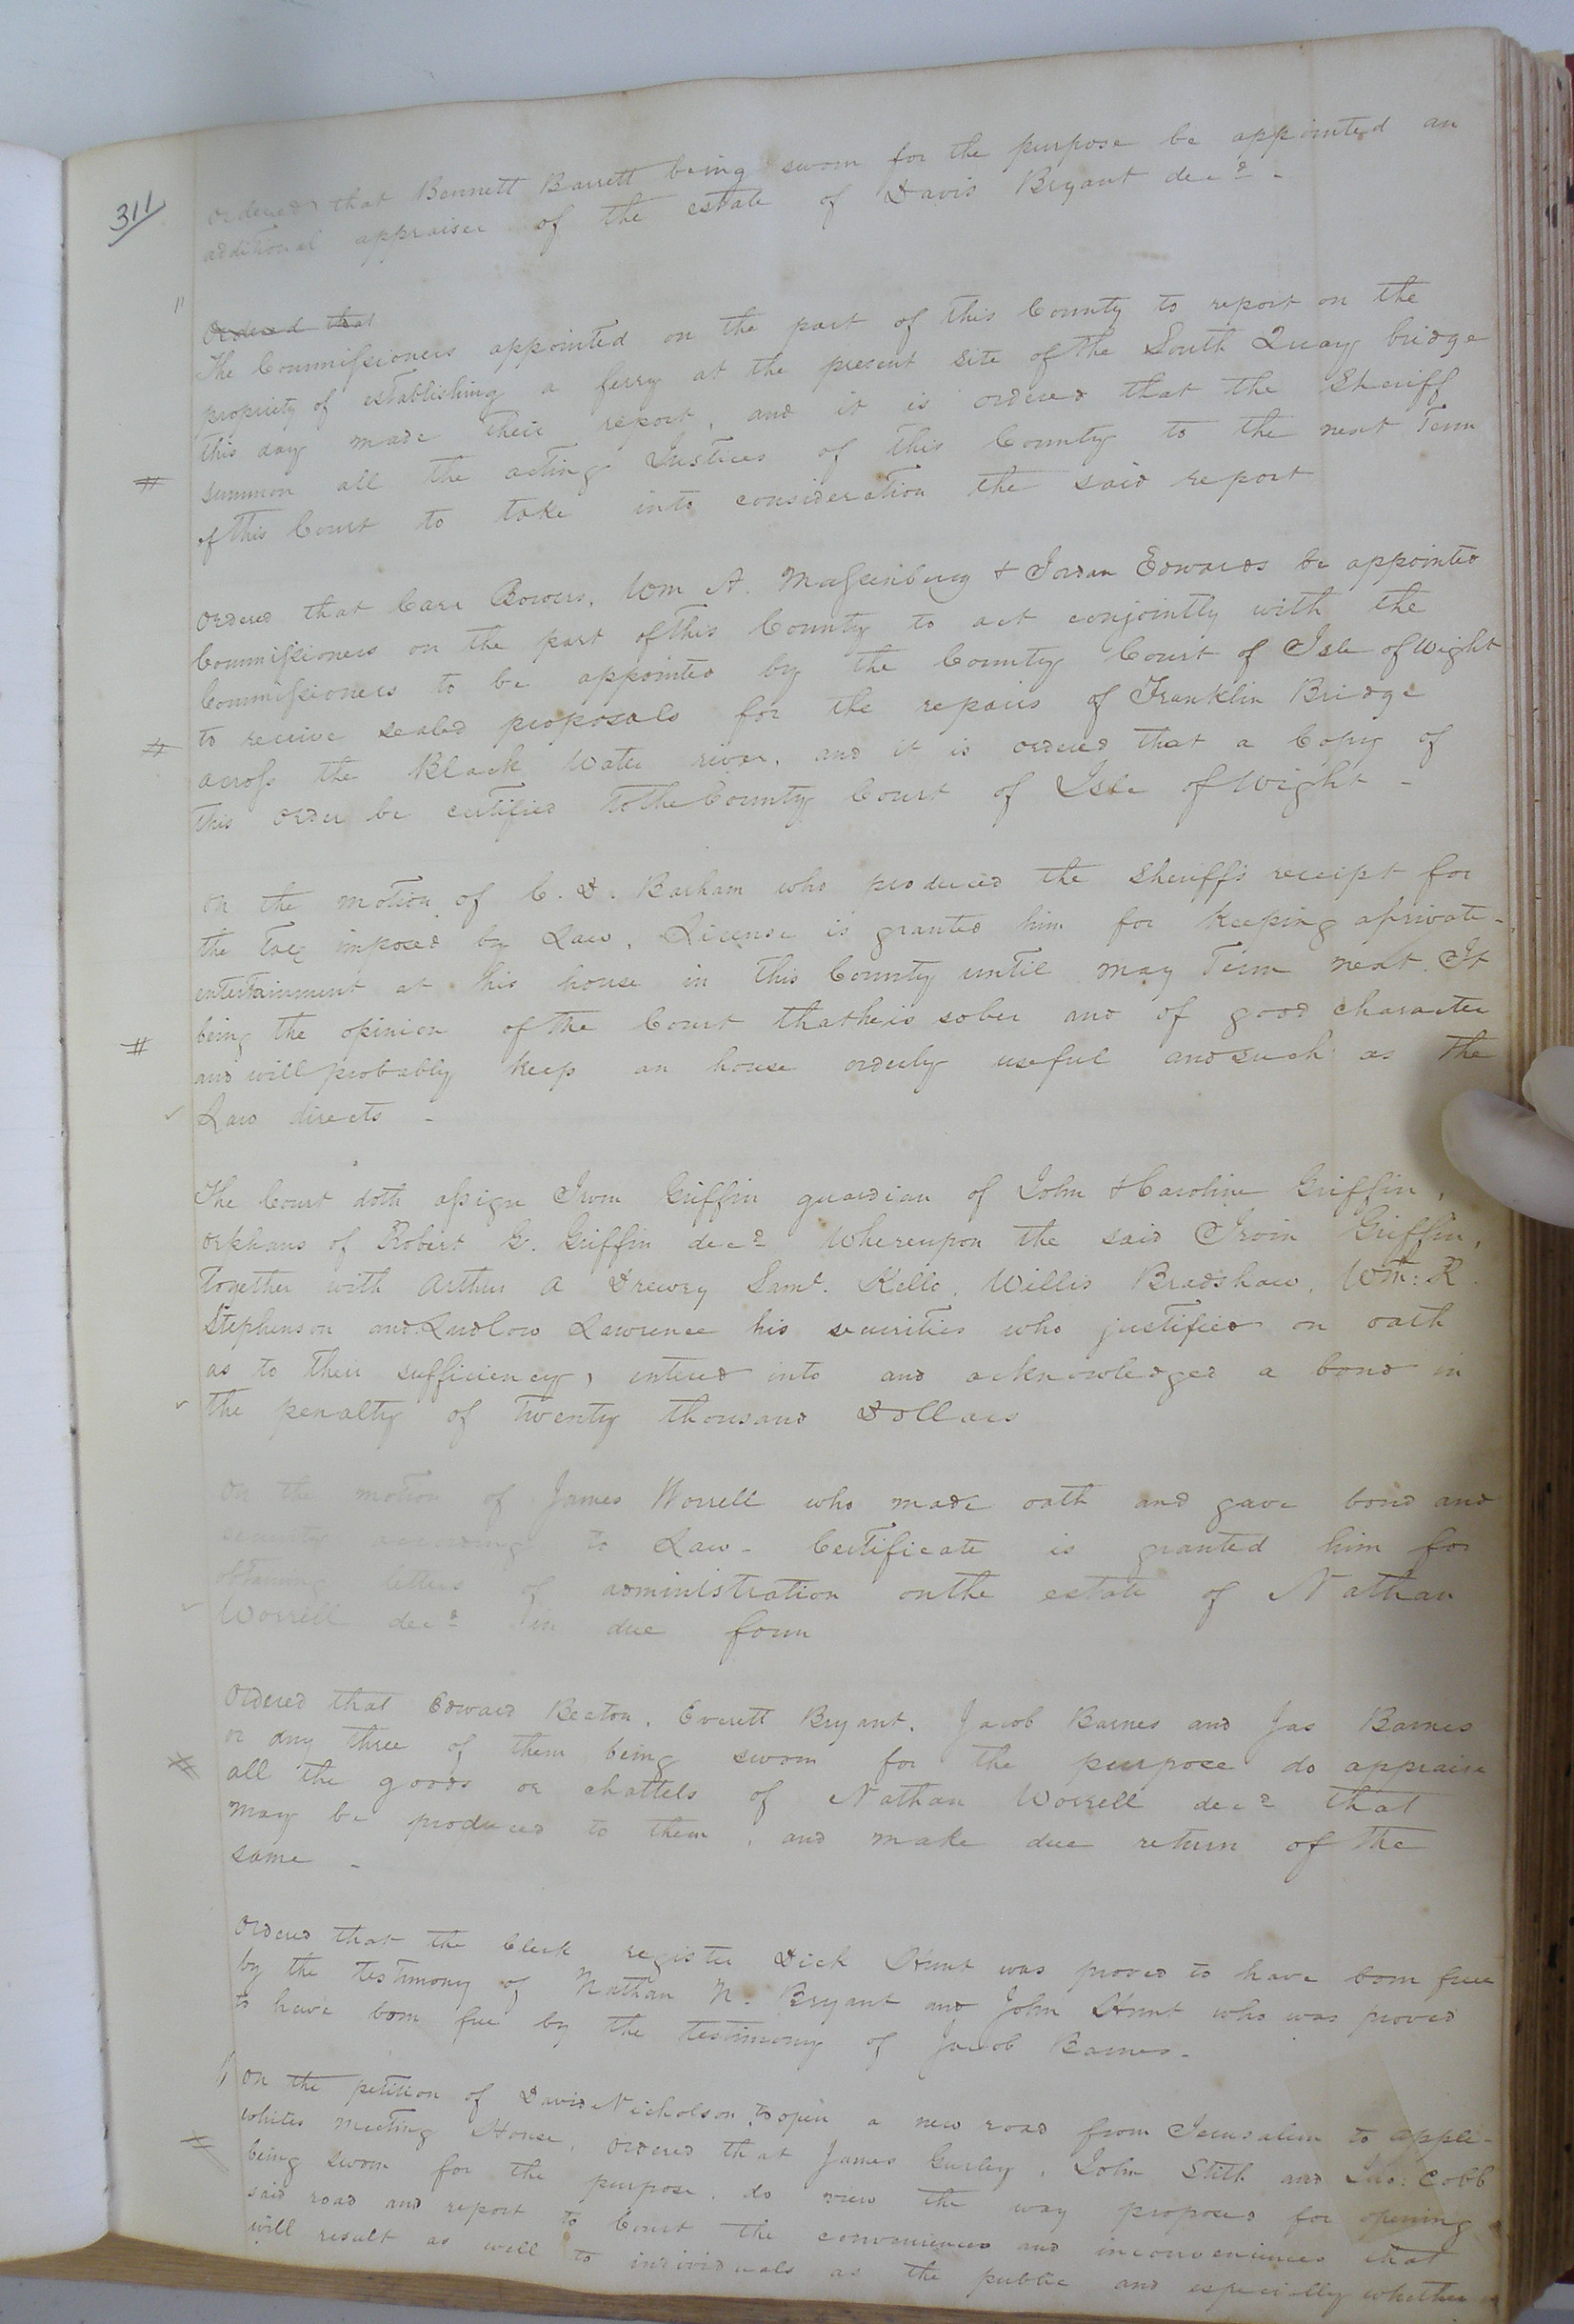 311
Ordered that Bennett Barrett being sworn for the purpose be appointed an
additional appraiser of the estate of Davis Bryant decd. -
Ordered that
The Commissioners appointed on the part of this County to report on the
propriety of establishing a ferry at the present site of the South Quay bridge
this day made their report, and it is ordered that the Sheriff
summon all the acting Justices of this County to the next Term
of this Court to take into consideration the said report
Ordered that Carr Bowers, Wm A. Massenburg & Jordan Edwards be appointed
Commissioners on the part of this County to act conjointly with the
Commissioners to be appointed by the County Court of Isle of Wight
to receive sealed proposals for the repairs of Franklin Bridge
across the Black Water river, and it is ordered that a Copy of
this order be certified to the County Court of Isle of Wight -
On the motion of C. D. Barham who produced the Sheriffs receipt for
the Tax imposed by Law, License is granted him for keeping a private
entertainment at his house in this County until may Term next. It
being the opinion of the Court that he is sober and of good character
and will probably keep an house orderly useful and such as the
Law directs -
The Court doth assign Irvin Griffin guardian of John & Caroline Griffin,
orphans of Robert G. Griffin decd. Whereupon the said Irvin Griffin,
Together with Arthur A Drewry Saml. Kello, Willis Bradshaw, Wm: R.
Stephenson and Ludlow Lawrence his securities who justified on oath
as to their sufficiency, entered into and acknowledged a bond in
the penalty of Twenty thousand Dollars
On the motion of James Worrell who made oath and gave bond and
security according to Law - Certificate is granted him for
obtaining letters of administration on the estate of Nathan
Worrell decd. in due form
Ordered that Edward Beaton, Everett Bryant, Jacob Barnes and Jas Barnes
or any three of them being sworn for the purpose do appraise
all the goods or chattels of Nathan Worrell decd that
may be produced to them, and make due return of the
same -
Ordered that the Clerk register Dick Hunt was proved to have born free
by the testimony of Nathan N. Bryant and John Hunt who was proved
to have born free by the testimony of Jacob Barnes -
On the petition of David Nicholson, to open a new road from Jerusalem to apple-
whites meeting House, Ordered that James Gurley, John Stith and Jno: Cobb
being sworn for the purpose, do view the way proposed for opening
said road and report to Court the conveniences and inconveniences that
will result as well to individuals as the public and especially whether